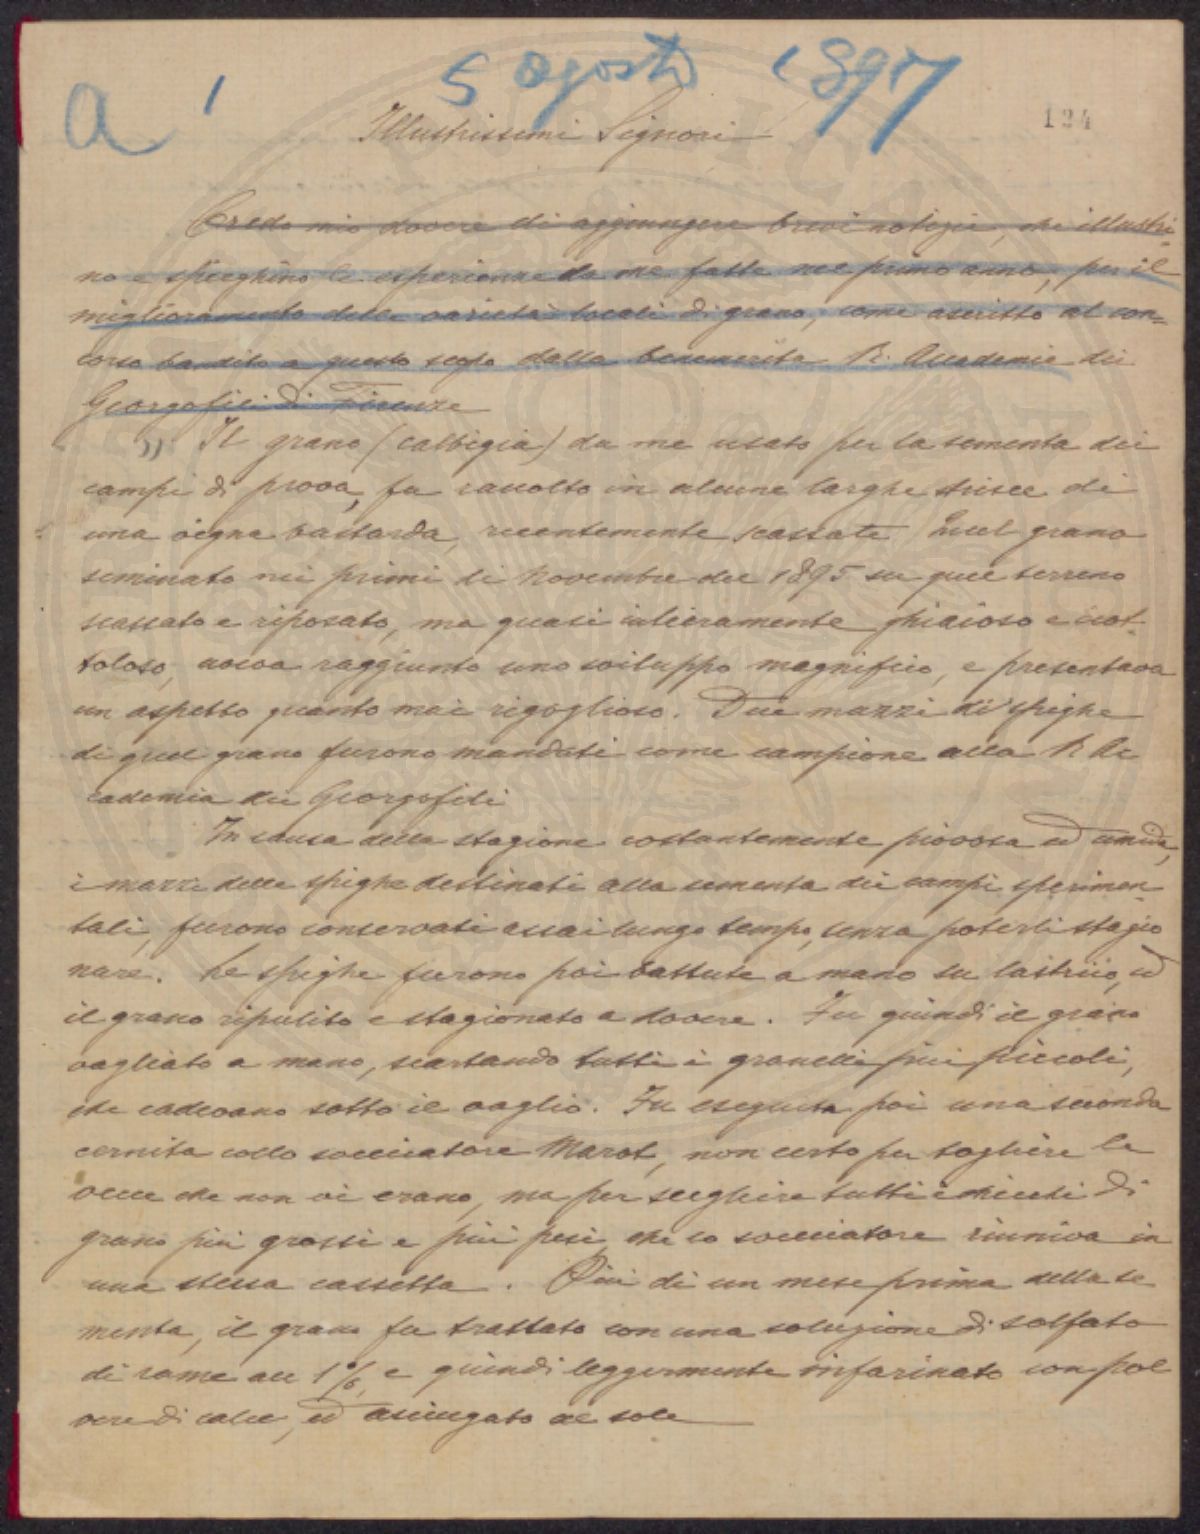 a 1 5 agosto 1897
Illustrissimi Signori
124
Credo mio dovere di aggiungere brevi notizie, che illustri-
no e spieghino le esperienze da me fatte nel primo anno, per il
miglioramento delle varietà locali di grano, come ascritto al con=
corso bandito a questo scopo dalla benemerita R. Accademia dei
Georgofili di Firenze
)) Il grano (calbigia) da me usato per la sementa dei
campi di prova, fu raccolto in alcune larghe strisce di
una vigna bastarda, recentemente scassate. Quel grano
seminato nei primi di Novembre del 1895 su quel terreno
scassato e riposato, ma quasi intieramente ghiaioso e ciot-
toloso, aveva raggiunto uno sviluppo magnifico, e presentava
un aspetto quanto mai rigoglioso. Due mazzi di spighe
di quel grano furono mandati come campione alla R. Ac
cademia dei Georgofili
In causa della stagione costantemente piovosa ed umida,
i mazzi delle spighe destinati alla sementa dei campi sperimen-
tali, furono conservati assai lungo tempo, senza poterli stagio
nare. Le spighe furono poi battute a mano su lastrico, ed
il grano ripulito e stagionato a dovere. Fu quindi il grano
vagliato a mano, scartando tutti i granelli più piccoli,
che cadevano sotto il vaglio. Fu eseguita poi una seconda
cernita collo svecciatore Marot, non certo per togliere le
vecce che non vi erano, ma per scegliere tutti i chicchi di
grano più grossi e più pesi che lo svecciatore riuniva in
una stessa cassetta. Più di un mese prima della se
menta, il grano fu trattato con una soluzione di solfato
di rame all 1%, e quindi leggermente infarinato con pol
vere di calce, ed asciugato al sole